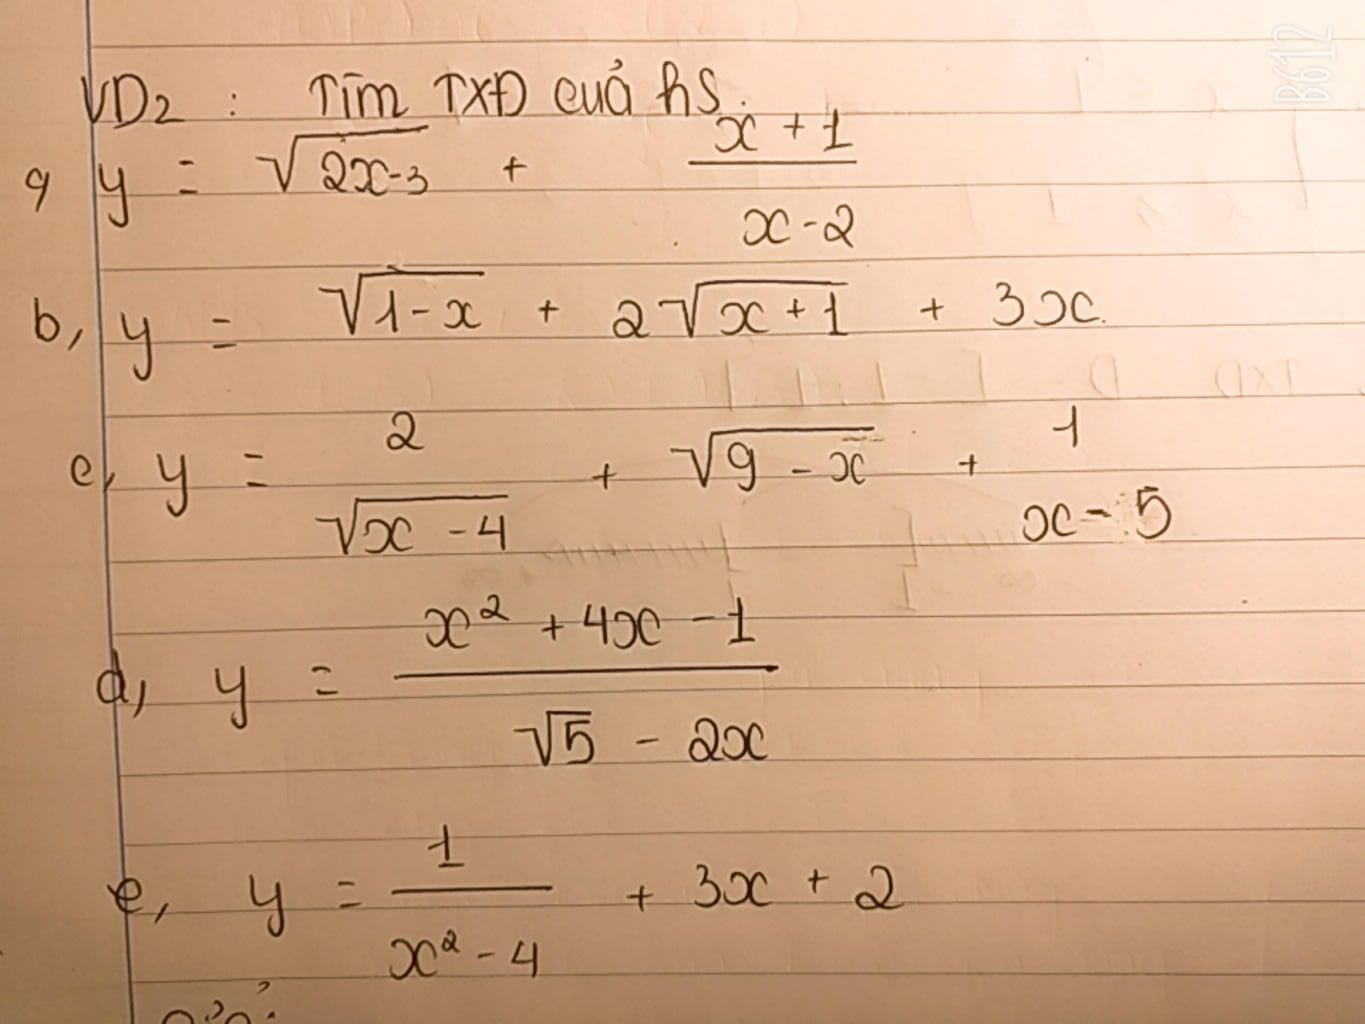 VD2 : Tìm TXĐ cuả hs.
a, y = √(2x-3) + (x + 1)/(x - 2)
b, y = √(1-x) + 2√(x + 1) + 3x.
c, y = 2/√(x - 4) + √(9 - x) + 1/(x - 5)
d, y = (x² + 4x - 1)/(√5 - 2x)
e, y = 1/(x² - 4) + 3x + 2
B612